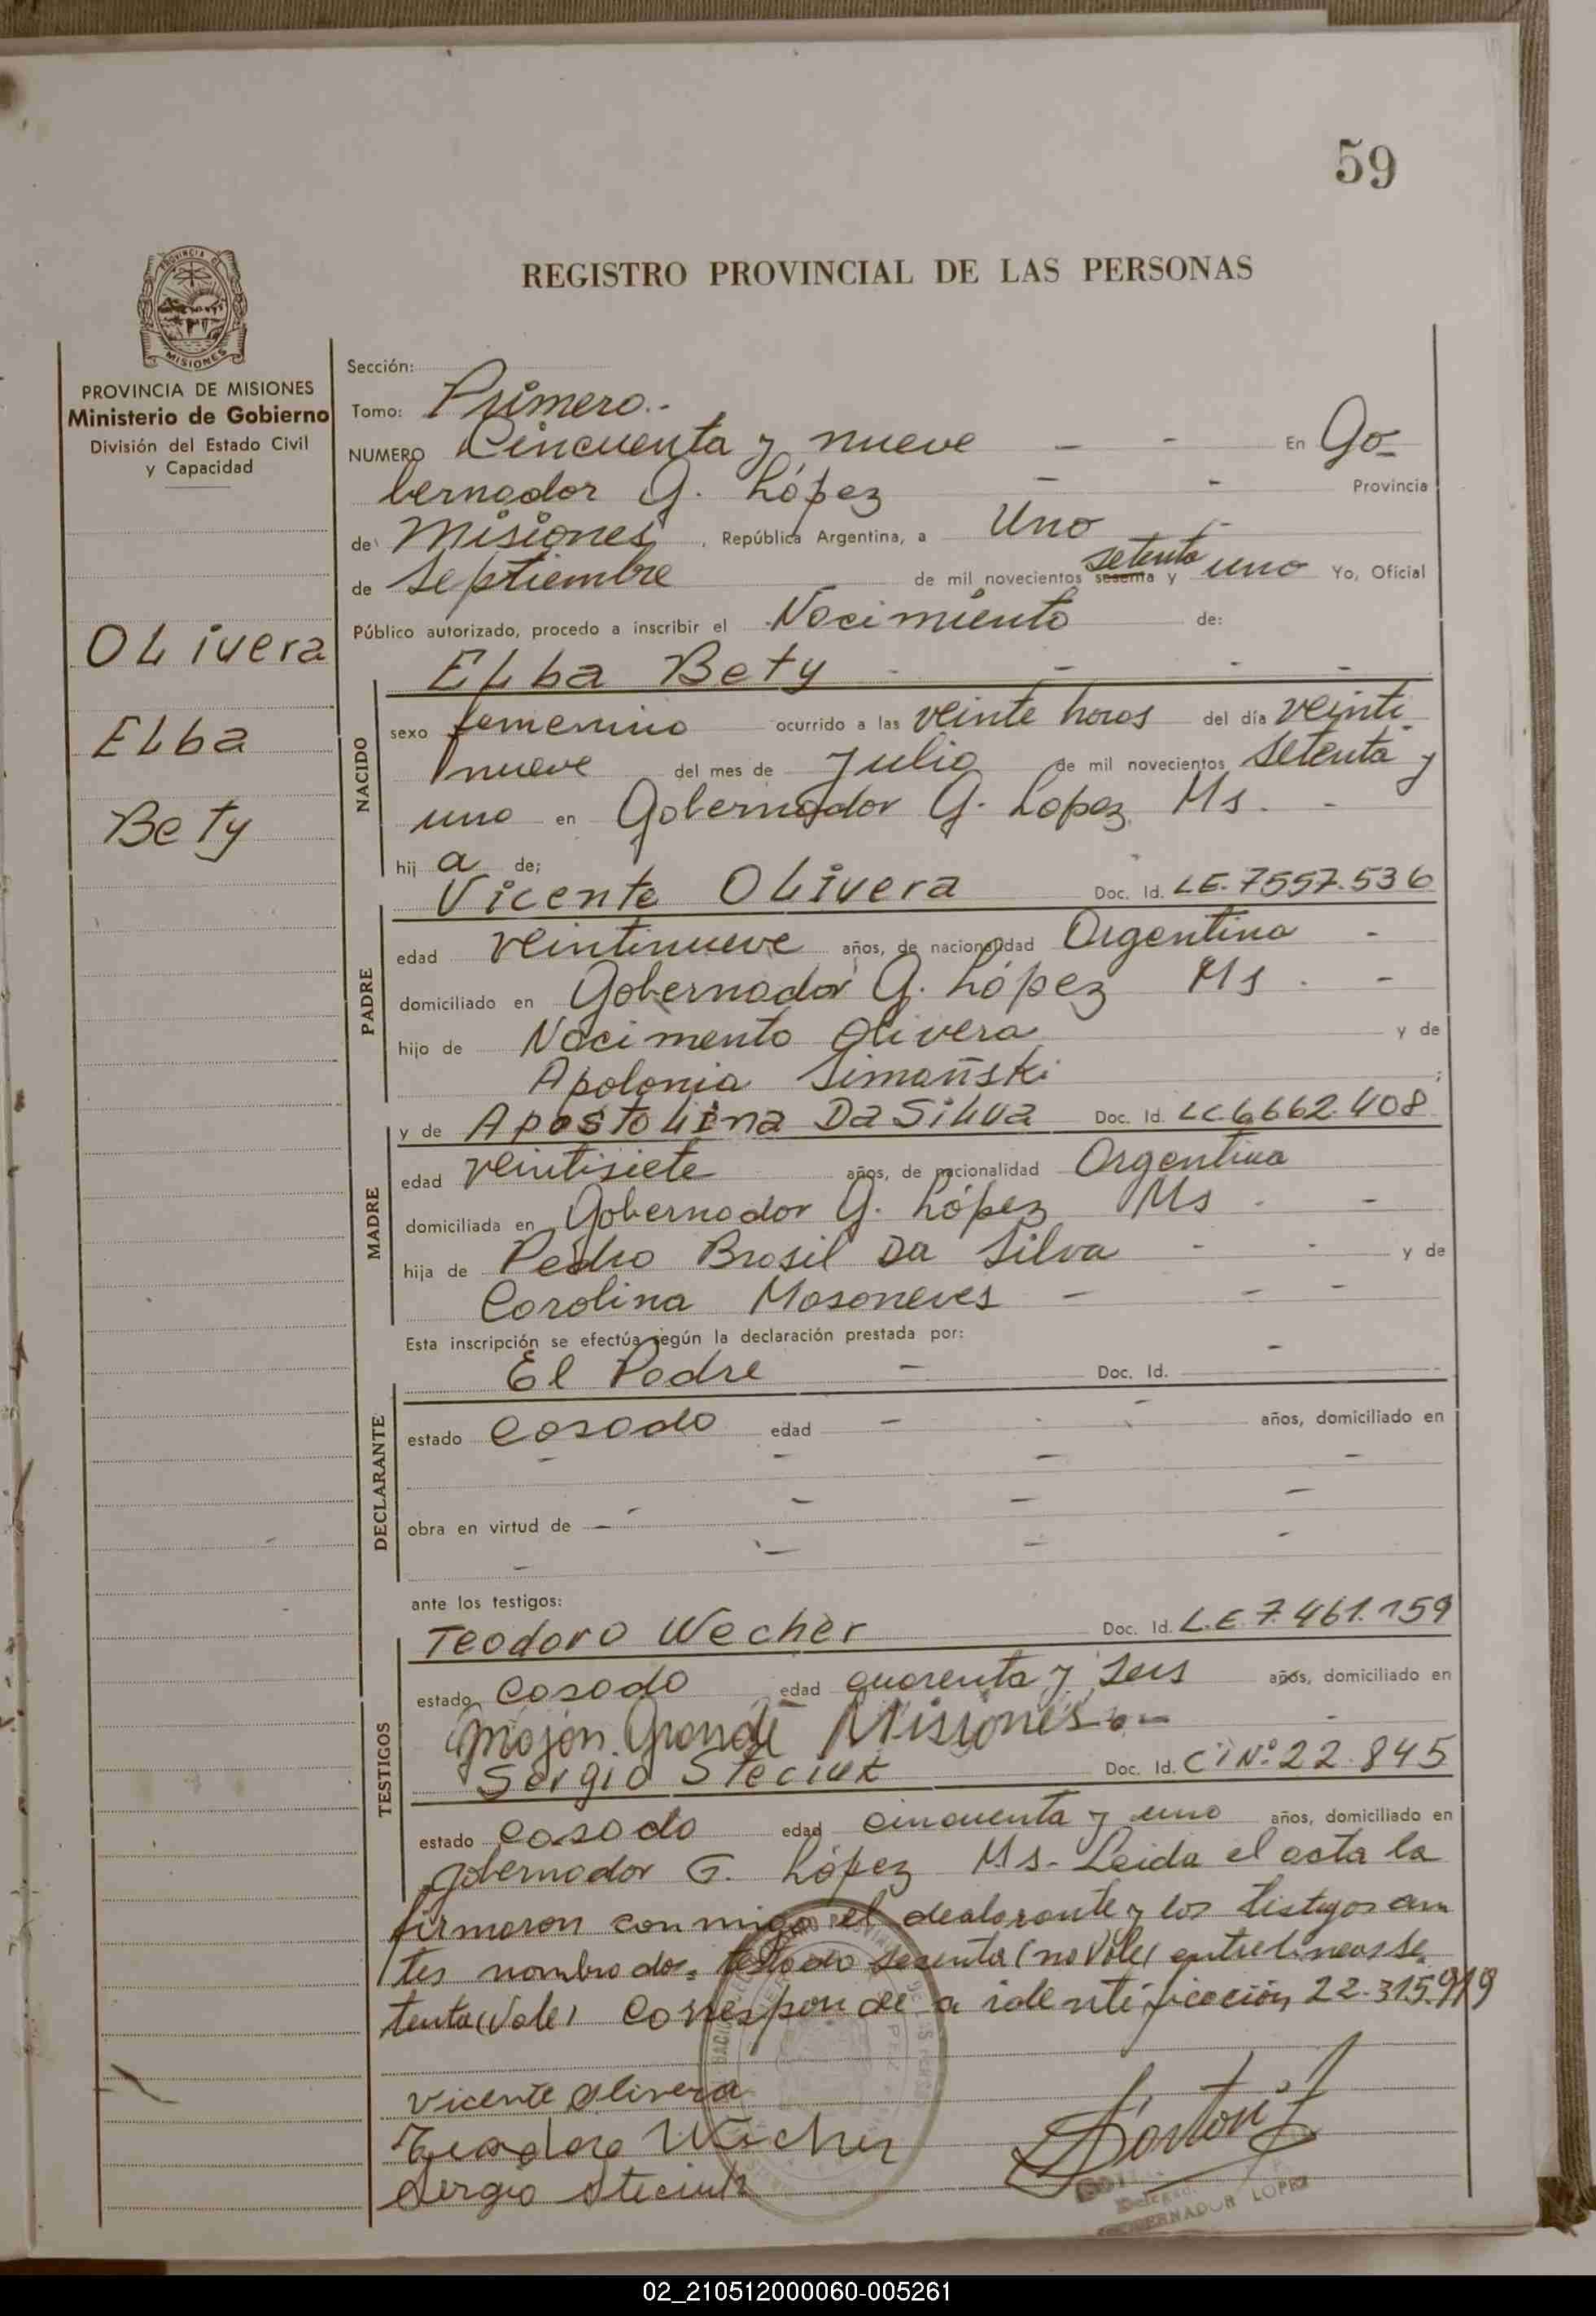 59
REGISTRO PROVINCIAL DE LAS PERSONAS
PROVINCIA DE
MISIONES
PROVINCIA DE MISIONES
Ministerio de Gobierno
División del Estado Civil
y Capacidad
OLivera
ELba
Bety
Sección:
Tomo: Primero.-
NUMERO Cincuenta y nueve - - En Go-
bernador G. López - - Provincia
de Misiones, República Argentina, a Uno -
de septiembre de mil novecientos sesenta y setenta uno Yo, Oficial
Público autorizado, procedo a inscribir el Nacimiento de:
ELba Bety - - - -
NACIDO
sexo femenino ocurrido a las veinte horas del día veinti-
nueve del mes de Julio de mil novecientos setenta y
uno en Gobernador G. Lopez Ms. -
hij a de;
Vicente OLivera Doc. Id. LE. 7557.536
PADRE
edad veintinueve años, de nacionalidad Argentina -
domiciliado en Gobernador G. López Ms. -
hijo de Nacimento Olivera y de
Apolonia Simañski ;
y de ApostoLina Da SiLva Doc. Id. LC 6662.408
MADRE
edad veintisiete años, de nacionalidad Argentina
domiciliada en Gobernador G. López Ms. -
hija de Pedro Brasil Da Silva - - y de
Carolina Masoneves - - -
Esta inscripción se efectúa según la declaración prestada por: -
El Padre - Doc. Id.
DECLARANTE
estado Casado edad - - años, domiciliado en
- - - -
- - -
obra en virtud de -
- - - -
ante los testigos:
Teodoro Wecher Doc. Id. L.E. 7.461.159
TESTIGOS
estado Casado edad cuarenta y seis años, domiciliado en
Mojon Grande Misiones.- -
Sergio Steciuk Doc. Id. CI Nº 22.845
estado Casado edad cincuenta y uno años, domiciliado en
Gobernador G. López Ms- Leida el acta la
firmaron conmigo el declarante y los testigos an
tes nombrados. testado sesenta (no Vale) entrelineas se
tenta (Vale) Corresponde a identificación 22.315.919
Vicente Olivera
Teodoro Wecher
Sergio Steciuk
GOBERNADOR LOPEZ
02_210512000060-005261